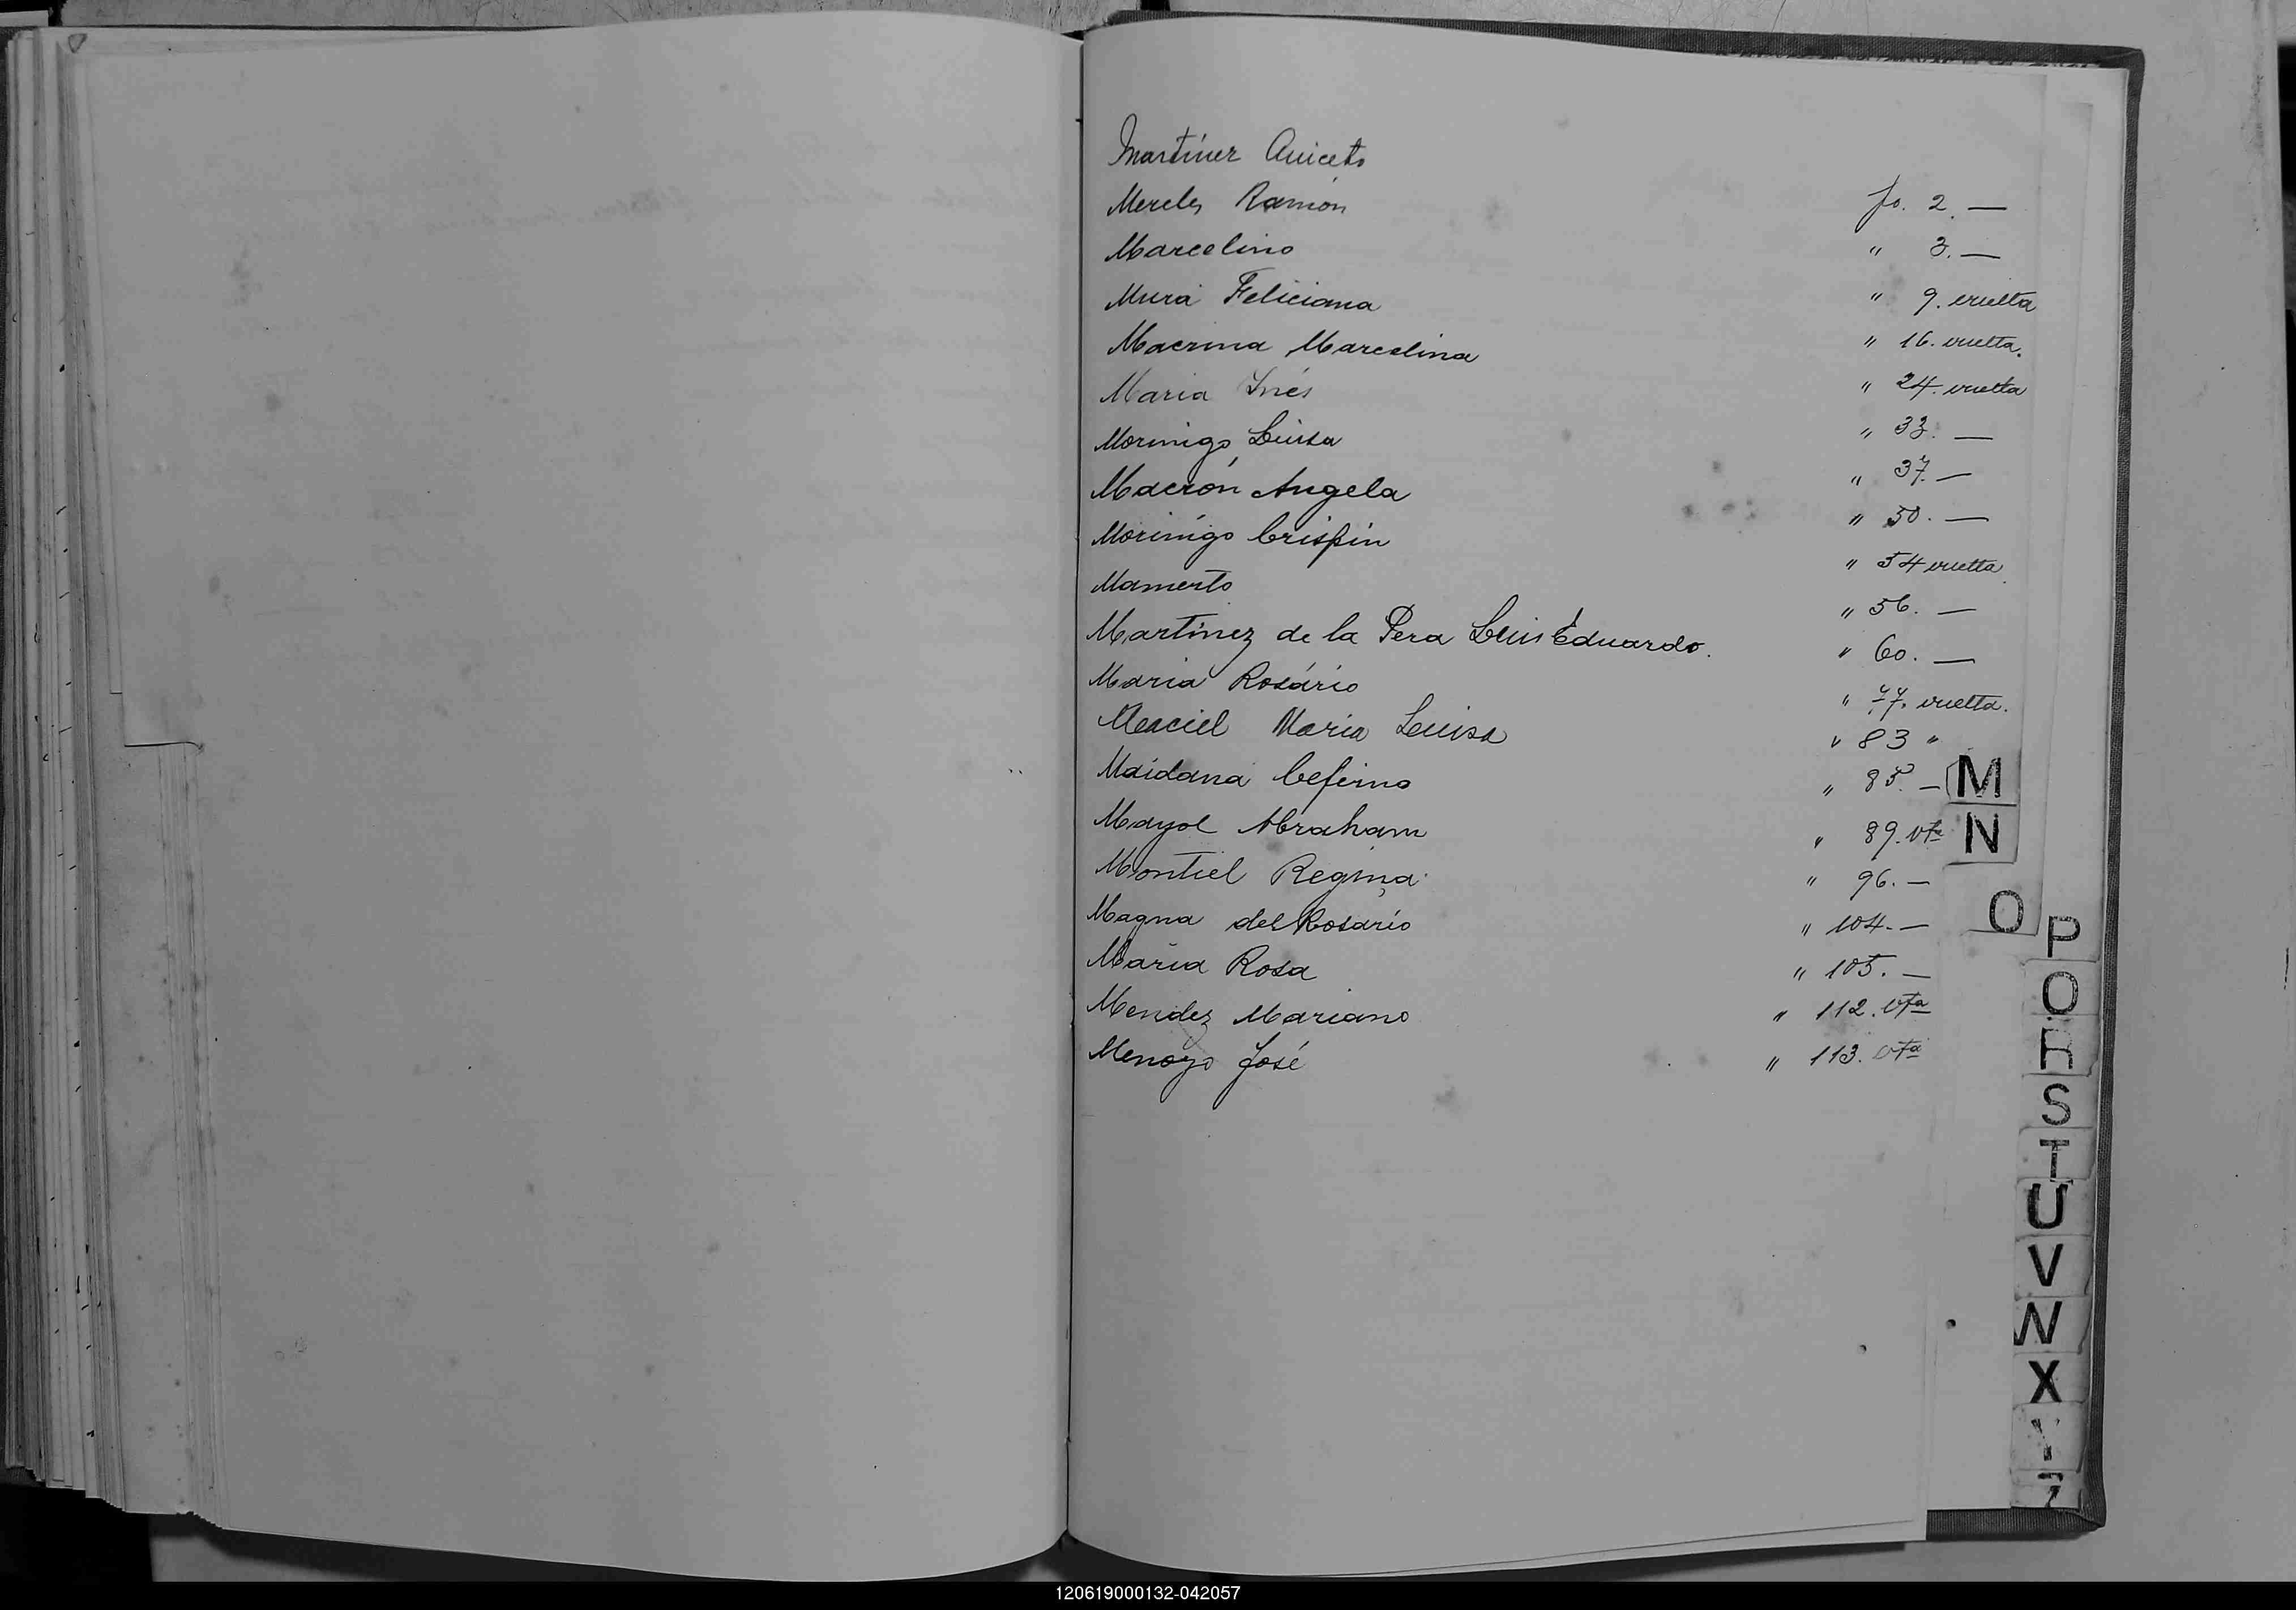 Martinez Aniceto
Mereles Ramón fo. 2. —
Marcelino " 3. —
Mura Feliciana " 9. vuelta
Macrina Marcelina " 16. vuelta.
Maria Inés " 24. vuelta
Morinigo Luisa " 33. —
Macrón Angela " 37. —
Morinigo Crispín " 50. —
Mamerto " 54 vuelta
Martínez de la Pera Luis Eduardo. " 56. —
Maria Rosário " 60. —
Maciel Maria Luisa " 77. vuelta.
Maidana Ceferino " 83 "
Mayol Abraham " 85. —
Montiel Regina " 89. vta
Magna del Rosario " 96. —
Maria Rosa " 104. —
Mendez Mariano " 105. —
Menoyo José " 112. vta
" 113. vta
M
N
O
P
Q
R
S
T
U
V
W
X
Y
Z
120619000132-042057